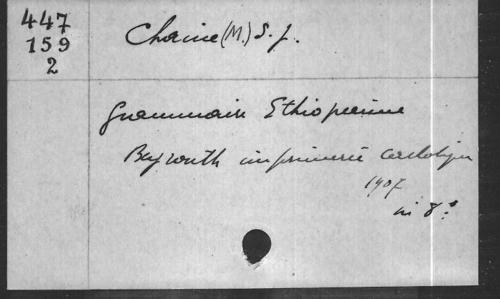 447
159
2
Chaine (M.) S. J.
Grammaire Ethiopienne
Beyrouth imprimerie catholique
1907
in 8º